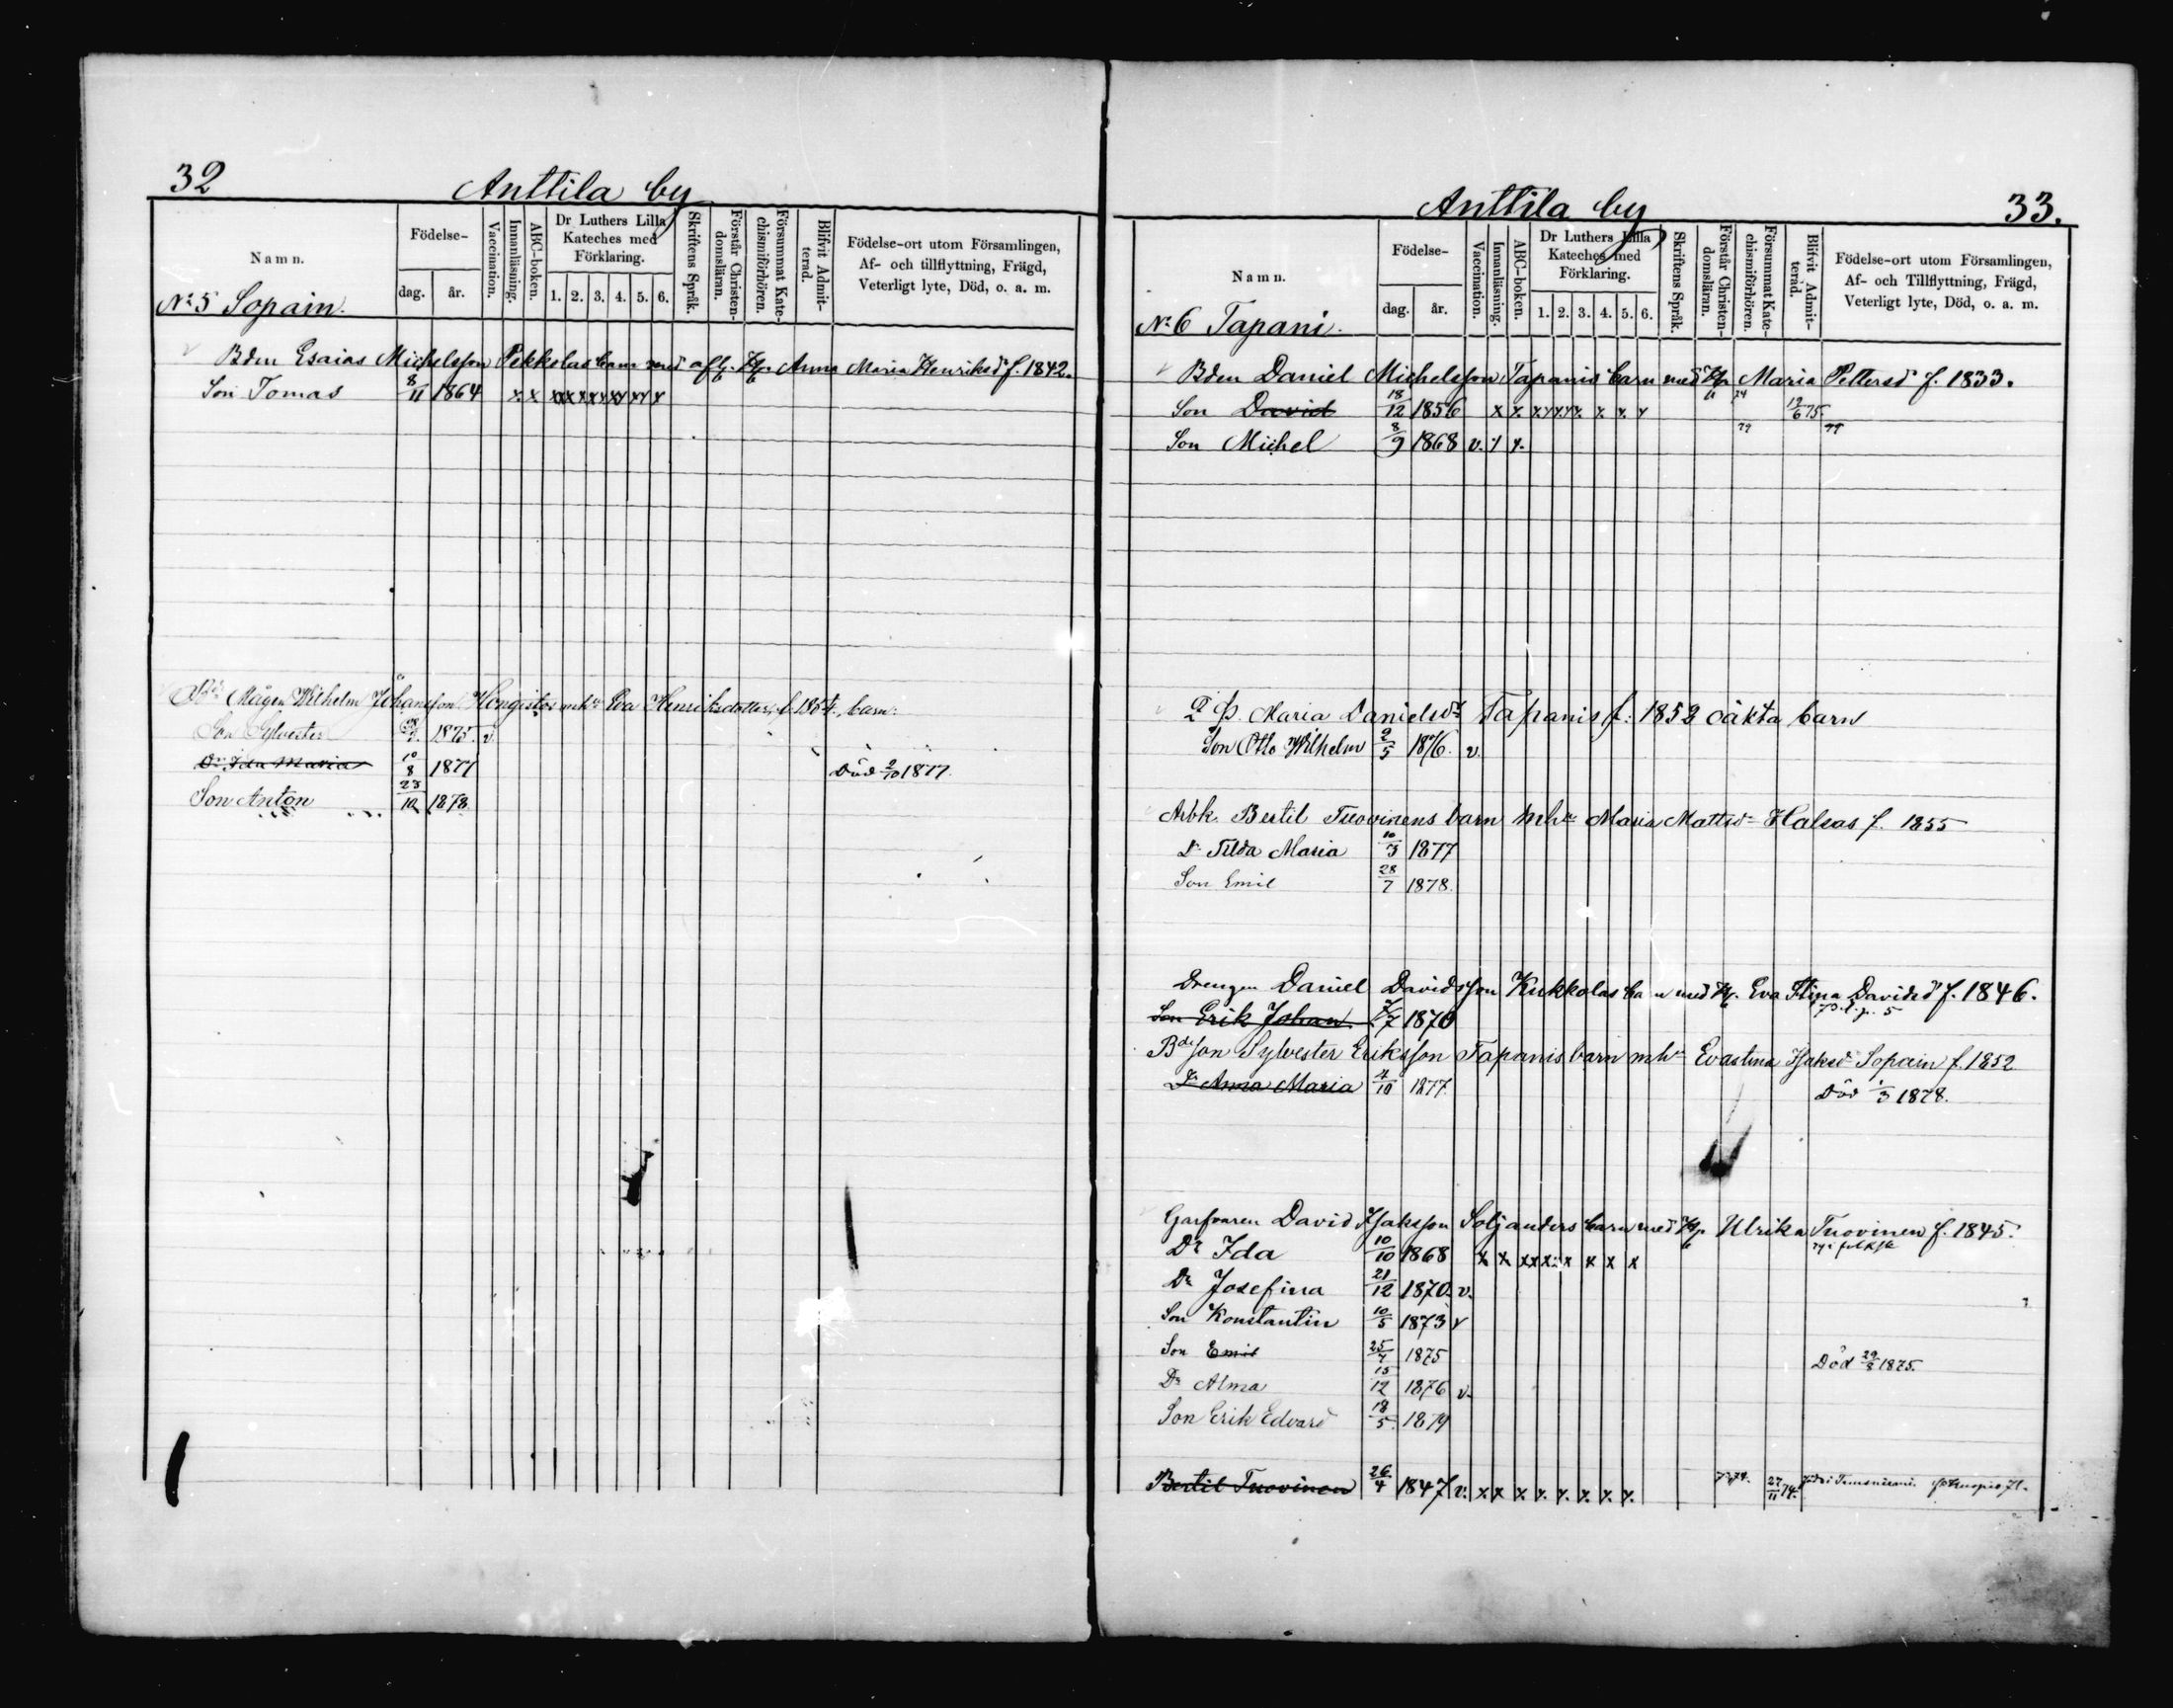 32
Anttila by
Namn.
Födelse-
dag.
år.
Vaccination.
Innanläsning.
ABC-boken.
Dr Luthers Lilla
Kateches med
Förklaring.
1. 2. 3. 4. 5. 6.
Skriftens Språk.
Förstår Christen-
domsläran.
Försummat Kate-
chismiförhören.
Blifvit Admit-
terad.
Födelse-ort utom Församlingen,
Af- och tillflyttning, Frägd,
Veterligt lyte, Död, o. a. m.
No 5 Sopain.
Bden Esaias Michelsson Pekkolas barn med afl. Hu. Anna Maria Henriksdr f. 1842.
Son Tomas 8/11 1864 x x xx xx xx xx xx x
Mågen Wilhelm Johansson Hongistos mhu Eva Henriksdotter, f. 1854, barn:
Son Sylvester 1875. v.
Dr Ida Maria 10/8 1877 Död 2/10 1877.
Son Anton 23/12 1878
Anttila by
33.
Namn.
Födelse-
dag.
år.
Vaccination.
Innanläsning.
ABC-boken.
Dr Luthers Lilla
Kateches med
Förklaring.
1. 2. 3. 4. 5. 6.
Skriftens Språk.
Förstår Christen-
domsläran.
Försummat Kate-
chismiförhören.
Blifvit Admit-
terad.
Födelse-ort utom Församlingen,
Af- och Tillflyttning, Frägd,
Veterligt lyte, Död, o. a. m.
No 6 Tapani.
Bden Daniel Michelsson Tapanis barn med Hu Maria Pettersdr f. 1833.
Son David 18/12 1856 x x xx xx x x x 74 19/6 75.
Son Michel 8/9 1868 v. x x. 79
Q. P. Maria Danielsdr Tapanis f: 1852 oäkta barn
Son Otto Wilhelm 2/5 1876. v.
Arbk. Bertil Tuovinens barn mhu Maria Mattsdr Halsas f. 1855
Dr Tilda Maria 10/3 1877
Son Emil 28/7 1878.
Drengen Daniel Davidsson Kukkolas barn med Hu. Eva Stina Davidsdr f. 1846.
Son Erik Johan 7/7 1870
Bdeson Sylvester Eriksson Tapanis barn mhu Evastina Isaksdr Sopain f. 1852
Dr Anna Maria 4/10 1877. Död 1/3 1878.
Garfvaren David Isaksson Soljanders barn med Hu. Ulrika Tuovinen f. 1845.
Dr Ida 10/10 1868 x x xx x x x x x
Dr Josefina 21/12 1870. v.
Son Konstantin 10/5 1873 v
Son Emil 25/7 1875 Död 29/8 1875.
Dr Alma 15/12 1876 v.
Son Erik Edvard 18/5 1879
Bertil Tuovinen 26/4 1847 v. x x x x. x. x. x. x. 27/11 74. född i